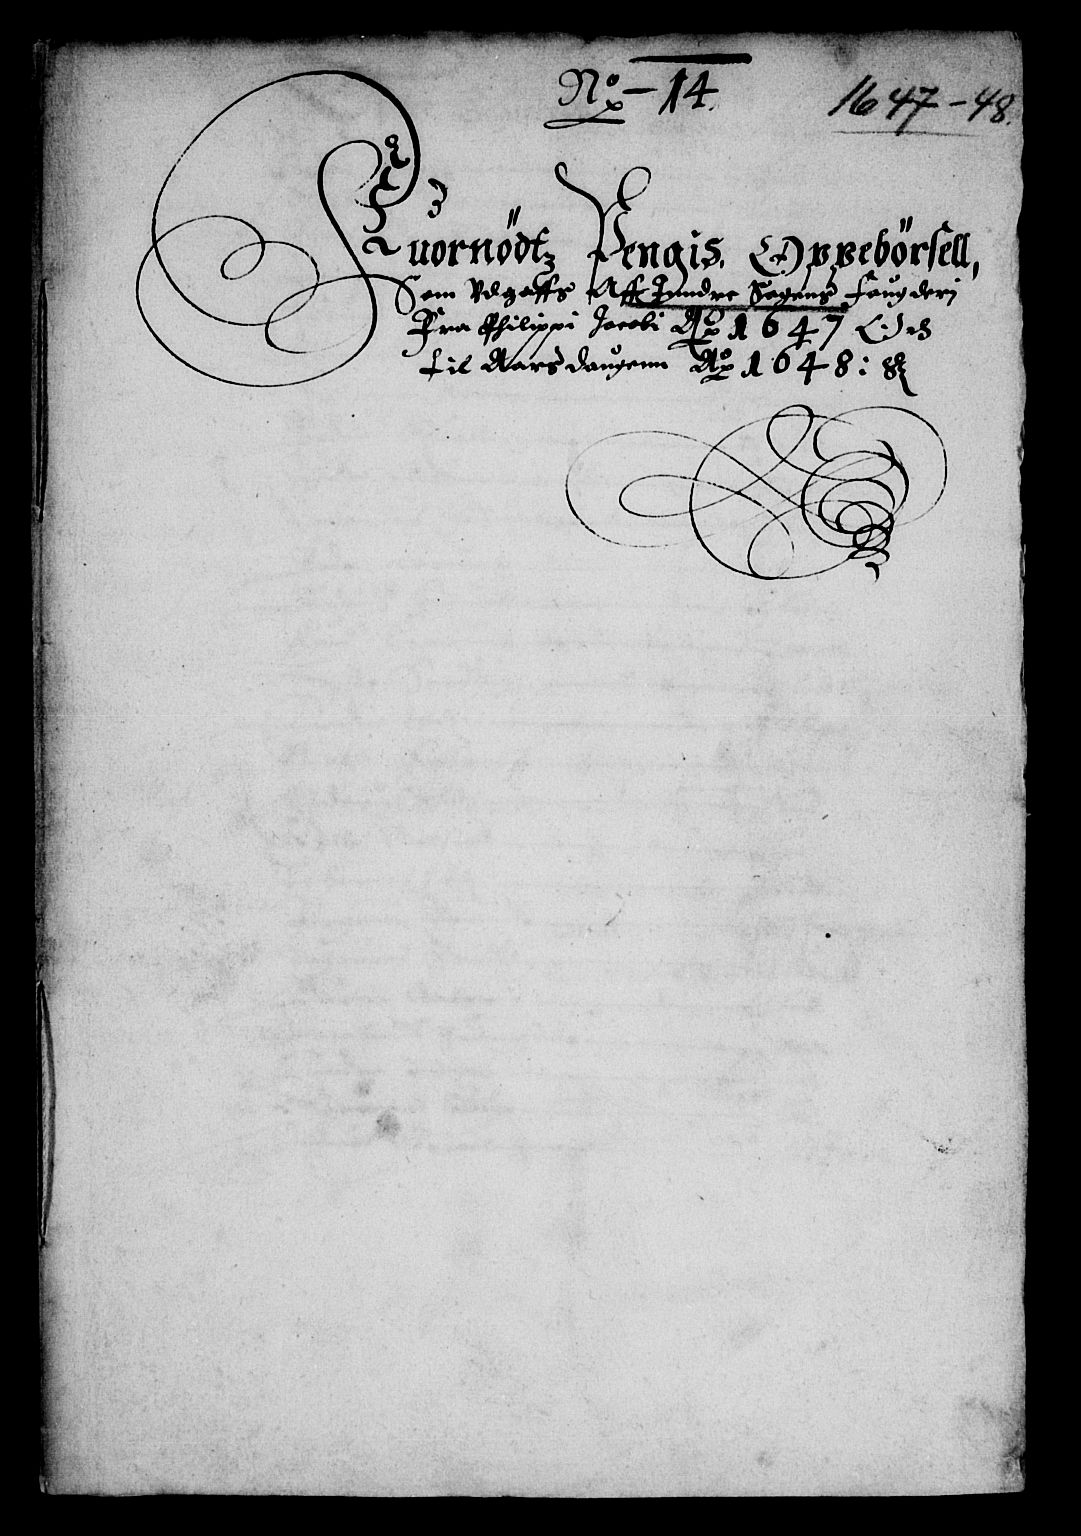 No - 14.
1647-48.
Quornödtz Pengis Oppebörsell,
Som Udgaffs Aff Jndre Sogens fougderj
Fra Philippi Jacobi Ao 1647 Och
til Aars daugenn Ao 1648: